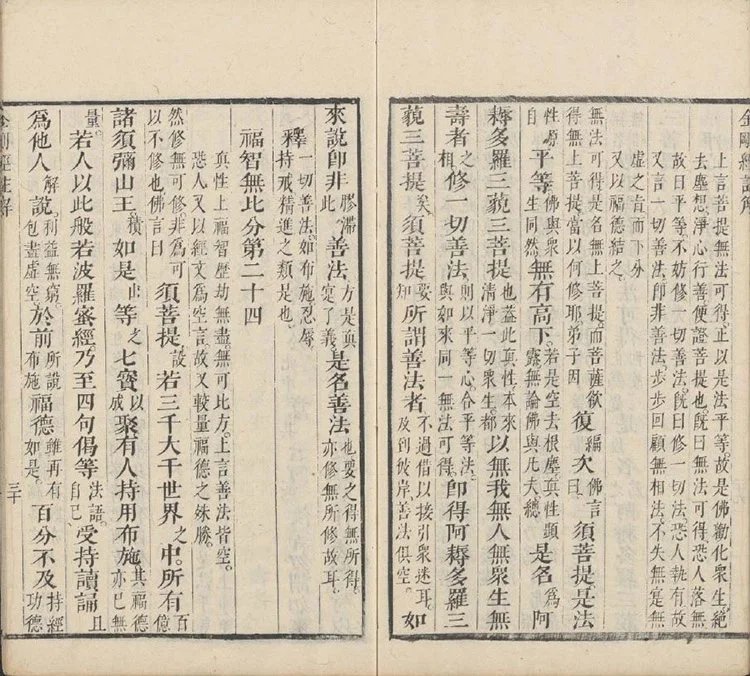 金剛經註解
上言菩提無法可得。正以是法平等。故是佛勸化衆生絕
去塵想。淨心行善。便證菩提也。旣曰無法可得。恐人落無
故曰平等不妨修一切善法。旣曰修一切法。恐人執有。故
又言一切善法。卽非善法。步步回顧無相法。不失無寔無
虛之肯而下分
又以福德結之。
無法可得。是名無上菩提。而菩薩欲得無上菩提。當以何修耶。弟子因復編次佛言曰。須菩提是法
性原自平等佛與衆生同然。無有高下。若是空去根塵。眞性顯露。無論佛與凡夫總是名爲阿
耨多羅三藐三菩提也。蓋此眞性。本來清淨。一切衆生。都以無我無人無衆生無
壽者之相修一切善法則以平等心。合平等法。與如來同一無法可得。卽得阿耨多羅三
藐三菩提矣。須菩提要知所謂善法者不過借以接引衆迷耳。及到彼岸。善法俱空。如
來說卽非膠滯此善法方是眞寔了義是名善法也。要之得無所得。亦修無所修故耳。
釋一切善法。如布施忍辱持戒精進之類是也。
福智無比分第二十四
眞性上福智歷劫無盡。無可比方。上言善法皆空。
恐人又以經文爲空言。故又較量福德之殊勝。
然修無可修。非爲可以不修也。佛言曰須菩提設若三千大千世界之中。所有百億
諸須彌山王積如是出等之七寶以成聚有人持用布施其福德亦已無
量。若人以此般若波羅蜜經乃至四句偈等法語。自己受持讀誦且
爲他人解說。利益無窮。包盡虛空。於前所說布施福德雖再有如是。百分不及持經功德
金剛經註解
三十